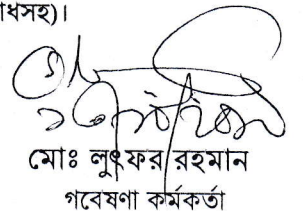 ধসহ)।
মোঃ লুৎফর রহমান
গবেষণা কর্মকর্তা